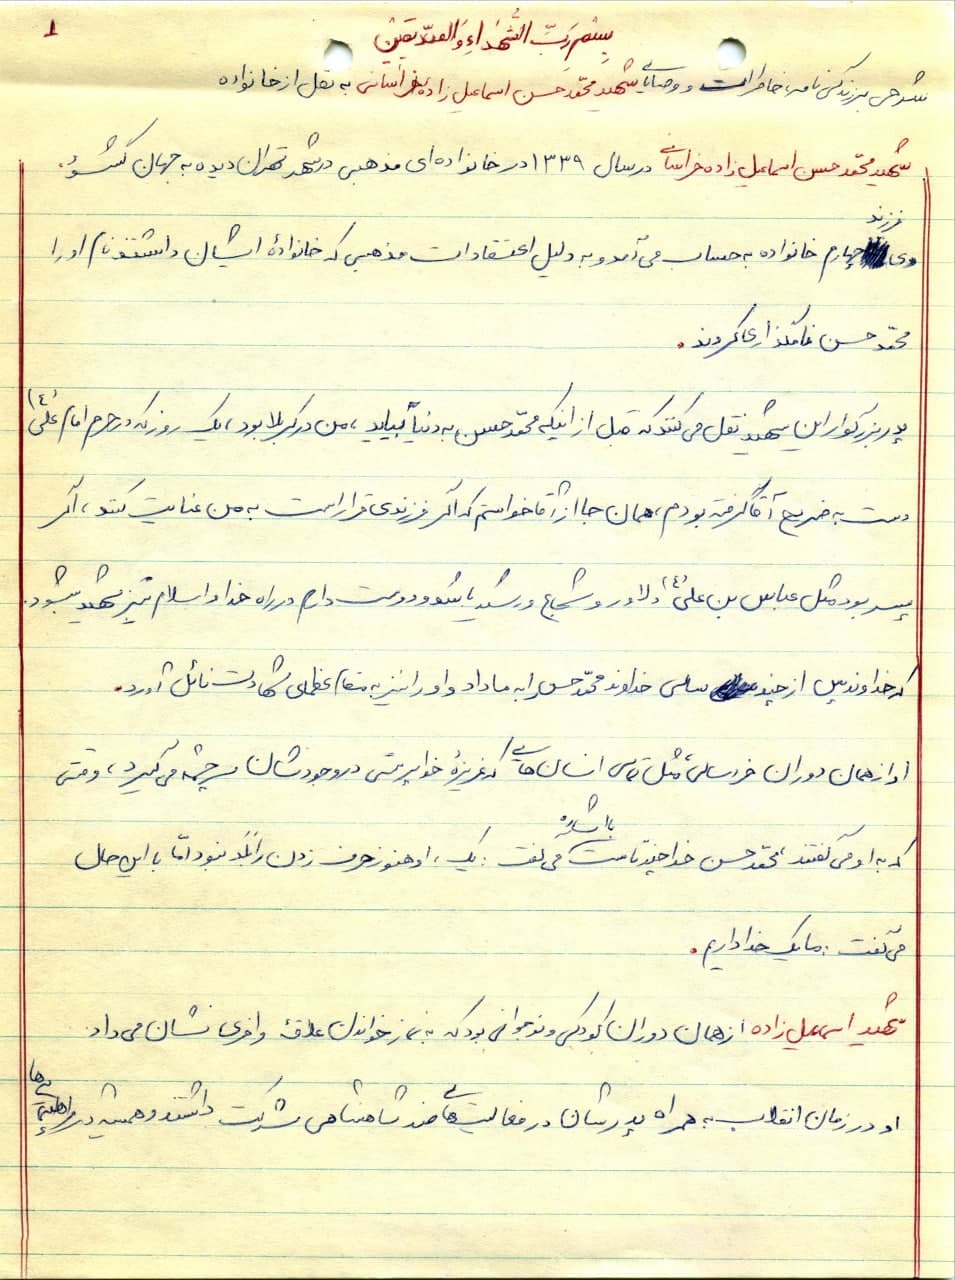 ۱
بِسْمِ رَبِّ الشُّهَداءِ وَ الصِّدّیقین
شرحی بر زندگی نامه، خاطرات و وصایای شهید محمّد حَسن اسماعیل زادهٔ خراسانی به نقل از خانواده
شهید محمّد حسن اسماعیل زاده خراسانی در سال ۱۳۳۹ در خانواده ای مذهبی در شهر تهران دیده به جهان گشود.
فرزند
وی چهارم خانواده به حساب می آمد و به دلیل اعتقادات مذهبی که خانوادهٔ ایشان داشتند نام او را
محمّد حسن نامگذاری کردند.
پدر بزرگوار این شهید نقل می کنند که قبل از اینکه محمّد حسن به دنیا بیاید، من در کربلا بودم، یک روز که در حرم امام علی (ع)
دست به ضریح آقا گرفته بودم، همان جا از آقا خواستم که اگر فرزندی قرار است به من عنایت کنند، اگر
پسر بود مثل عباس بن علی (ع) دلاور و شجاع و رشید باشد و دوست دارم در راه خدا و اسلام نیز شهید بشود.
که خداوند پس از چند سالی خداوند محمّد حسن را به ما داد و او را نیز به مقام عظمای شهادت نائل آورد.
او از همان دوران خردسالی، مثل تمامی انسان هایی که غریزهٔ خداپرستی در وجودشان سرچشمه می گیرد، وقتی
با اشاره
که به او می گفتند، محمّد حسن خدا چندتاست می گفت: یک، او هنوز حرف زدن را بَلَد نبود امّا با این حال
می گفت: ما یک خدا داریم.
شهید اسماعیل زاده از همان دوران کودکی و نوجوانی بود که به نماز خواندن علاقهٔ وافری نشان می داد
او در زمان انقلاب به همراه پدرشان در فعالیت هایی ضد شاهنشاهی شرکت داشتند و همیشه در راهپیمایی ها